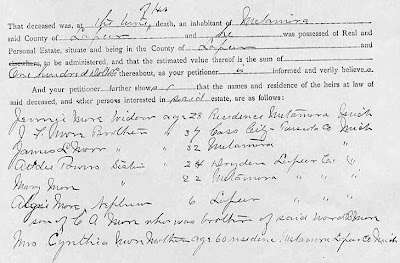 of his
That deceased was, at the time, death, an inhabitant of Metamora
said County of Lapeer and he was possessed of Real and
Personal Estate, situate and being in the County of Lapeer and
elsewhere, to be administered, and that the estimated value thereof is the sum of
One hundred dollars thereabouts, as your petitioner is informed and verily believes.
And your petitioner further shows that the names and residence of the heirs at law of
said deceased, and other persons interested in said estate, are as follows:
Widow age 28 Residence Metamora Mich
J F Mon Brother " 37 Cass City Tuscola Co Mich
James L " 32 Metamora "
Addie Powers Sister " 24 Dryden Lapeer Co "
Mary Mon " " 22 Metamora " " "
Nephew " 6 Lapeer " " "
son of C A Mon who was brother of said
Mrs Cynthia Mon Mother age 60 residence Metamora Lapeer Co Mich